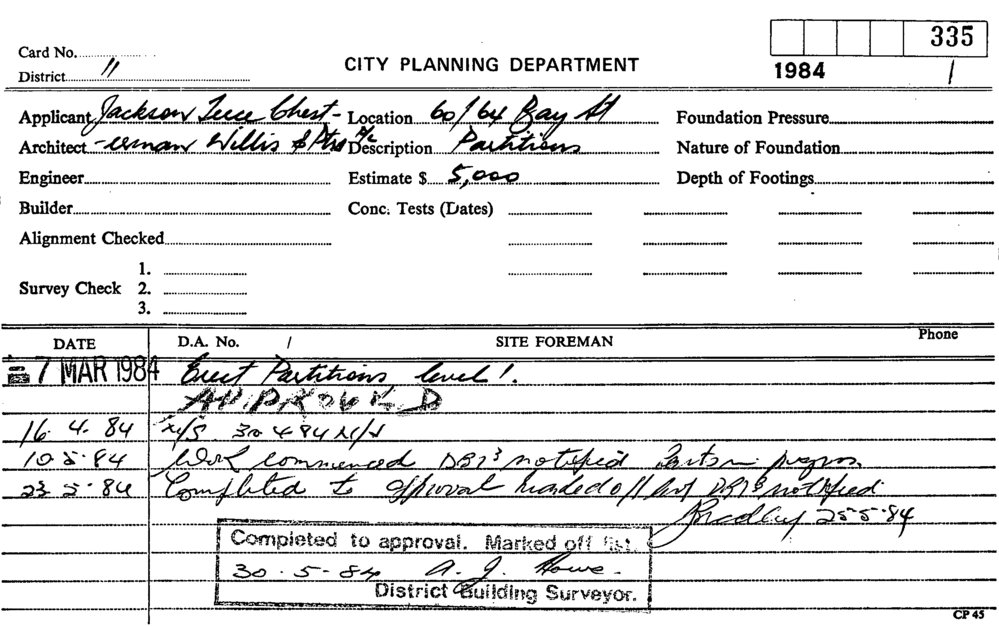 335
Card No.
District 11
CITY PLANNING DEPARTMENT
1984 /
Applicant Jackson Teece Chest- Location 60/64 Bay St Foundation Pressure
Architect -erman Willis & Ptrs P/L Description Partitions Nature of Foundation
Engineer Estimate $ 5,000 Depth of Footings
Builder Conc. Tests (Dates)
Alignment Checked
1.
Survey Check 2.
3.
DATE D.A. No. / SITE FOREMAN Phone
7 MAR 1984 Erect Partitions level 1.
APPROVED
16.4.84 N/S 30 4 84 N/S
10.5.84 Work commenced notified in progress
23.5.84 Completed to approval Marked off list notified
Bradley 25.5.84
Completed to approval. Marked off list.
30.5.84 A. J. Howe.
District Building Surveyor.
CP 45